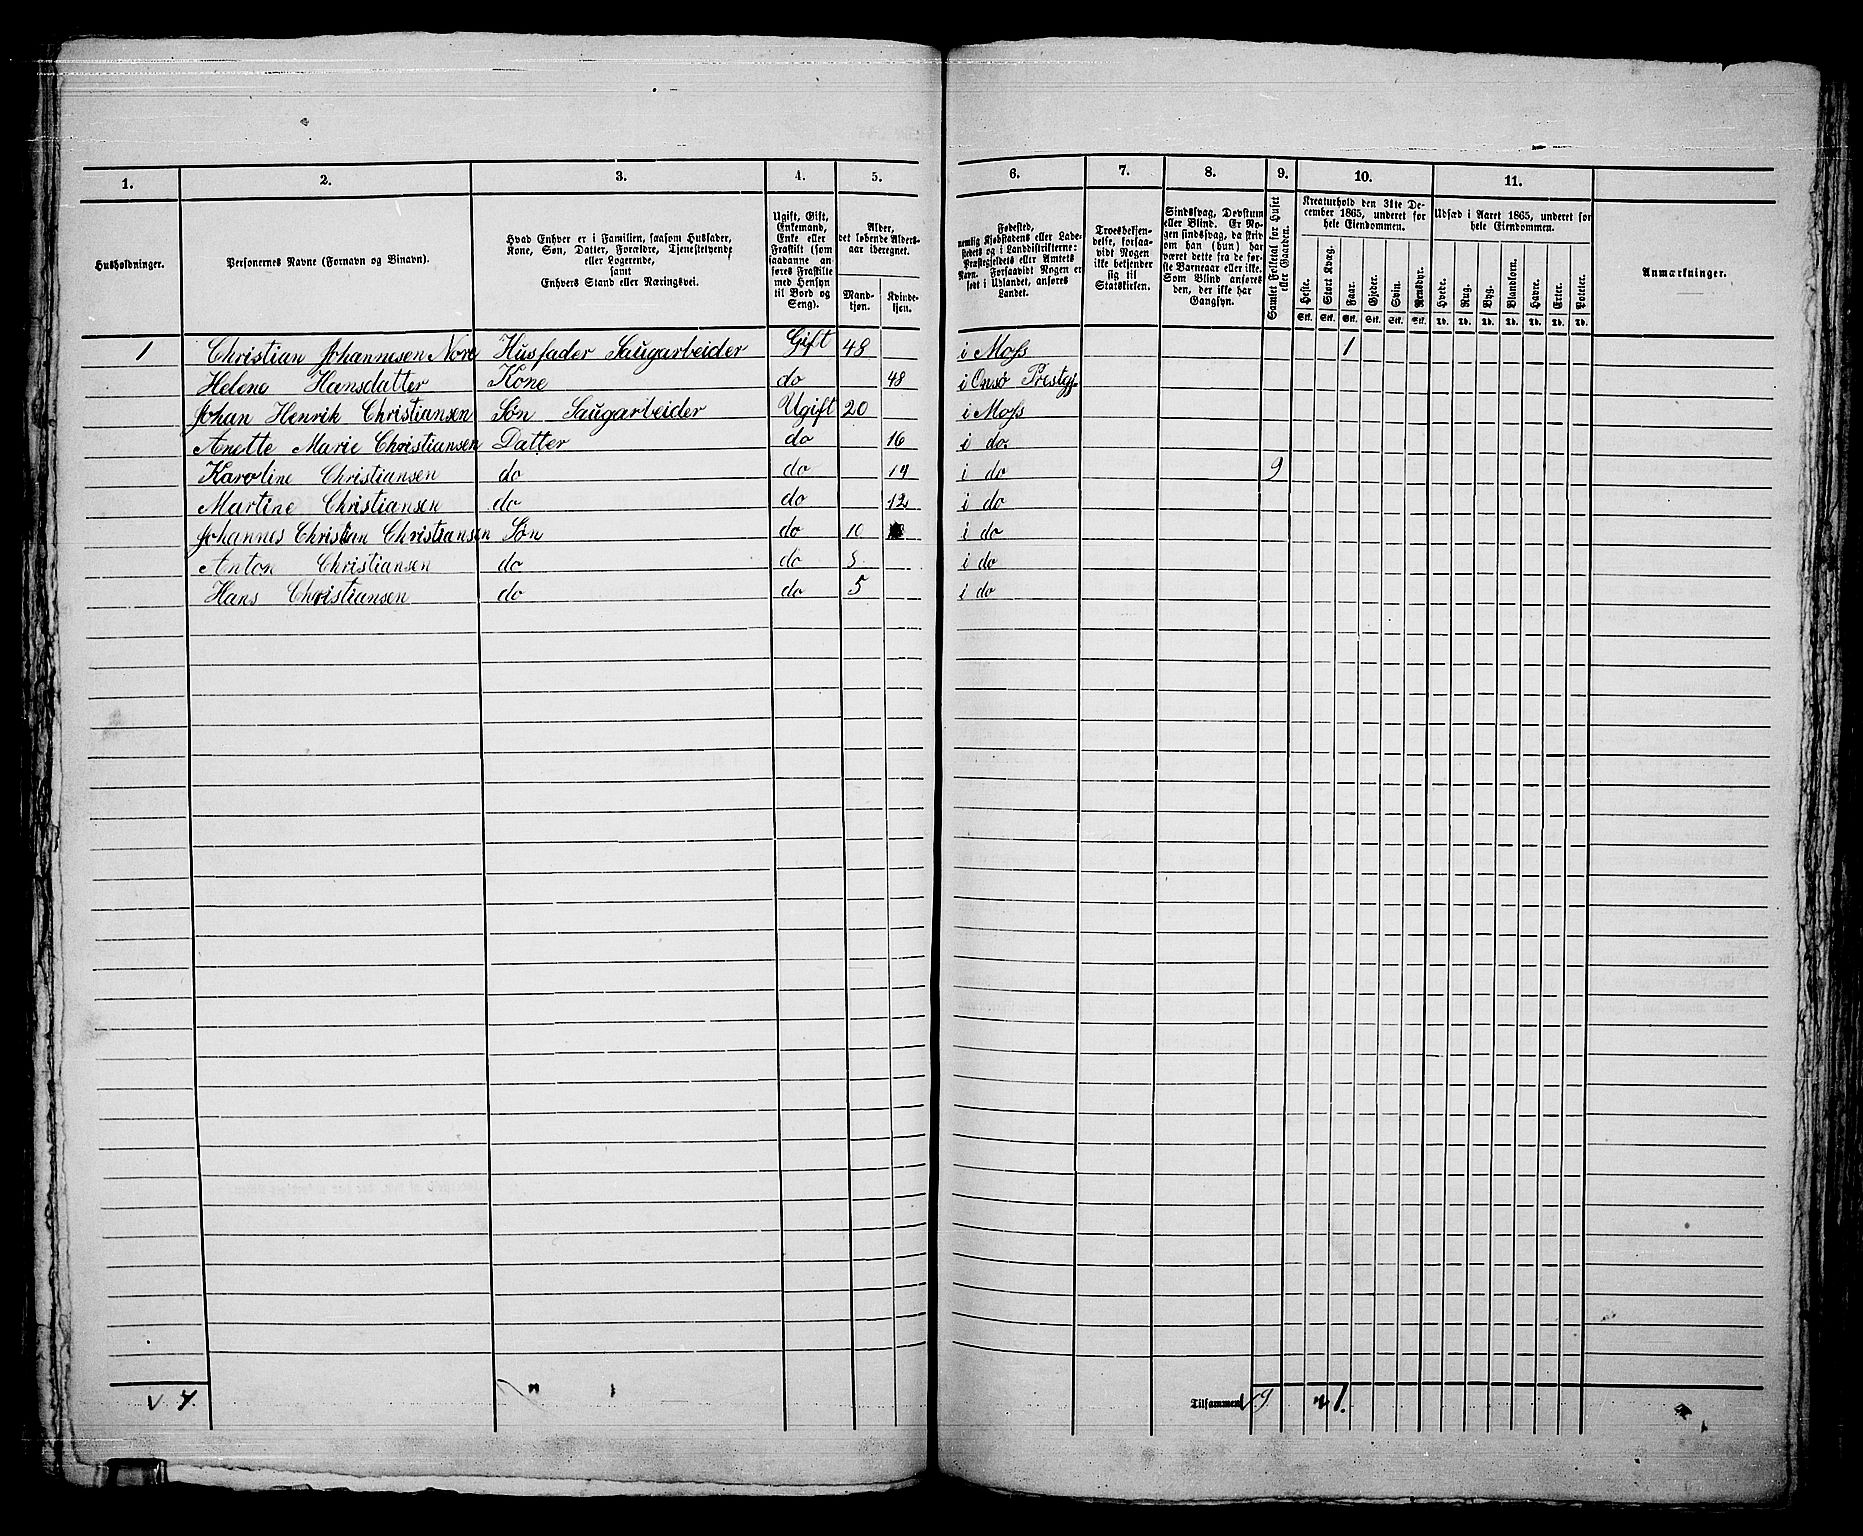 1. 2. 3. 4. 5. 6. 7. 8. 9. 10. 11.
Husholdninger.
Personernes Navne (Fornavn og Binavn).
Hvad Enhver er i Familien, saasom Husfader,
Kone, Søn, Datter, Forældre, Tjenestetyende
eller Logerende,
samt
Enhvers Stand eller Næringsvei.
Ugift, Gift,
Enkemand,
Enke eller
Fraskilt (som
saadanne an-
føres Fraskilte
med Hensyn
til Bord og
Seng).
Alder,
det løbende Alders-
aar iberegnet.
Mand-
kjøn.
Kvinde-
kjøn.
Fødested,
nemlig Kjøbstadens eller Lade-
stedets og i Landdistrikterne:
Præstegjeldets eller Amtets
Navn. Forsaavidt Nogen er
født i Udlandet, anføres
Landet.
Troesbekjen-
delse, forsaa-
vidt Nogen
ikke bekjender
sig til
Statskirken.
Sindssvag, Døvstum
eller Blind. Er No-
gen sindssvag, da skriv
om han (hun) har
været dette fra de før-
ste Barneaar eller ikke.
Som Blind anføres
den, der ikke har
Gangsyn.
Samlet Folketal for Huset
eller Gaarden.
Kreaturhold den 31te De-
cember 1865, underet for
hele Eiendommen.
Heste. Stort Kvæg. Faar. Gjeder. Svin. Rensdyr.
Stk. Stk. Stk. Stk. Stk. Stk.
Udsæd i Aaret 1865, underet for
hele Eiendommen.
Hvede. Rug. Byg. Blandkorn. Havre. Erter. Poteter.
Td. Td. Td. Td. Td. Td. Td.
Anmærkninger.
1 Christian Johannesen Nore Husfader Saugarbeider Gift 48 i Moss 1
Helene Hansdatter Kone do 48 i Onsø Prestgj.
Johan Henrik Christiansen Søn Saugarbeider Ugift 20 i Moss
Anette Marie Christiansen Datter do 16 i do
Karoline Christiansen do do 14 i do 9
Martine Christiansen do do 12 i do
Johannes Christian Christiansen Søn do 10 i do
Anton Christiansen do do i do
Hans Christiansen do do 5 i do
Tilsammen 9 1.